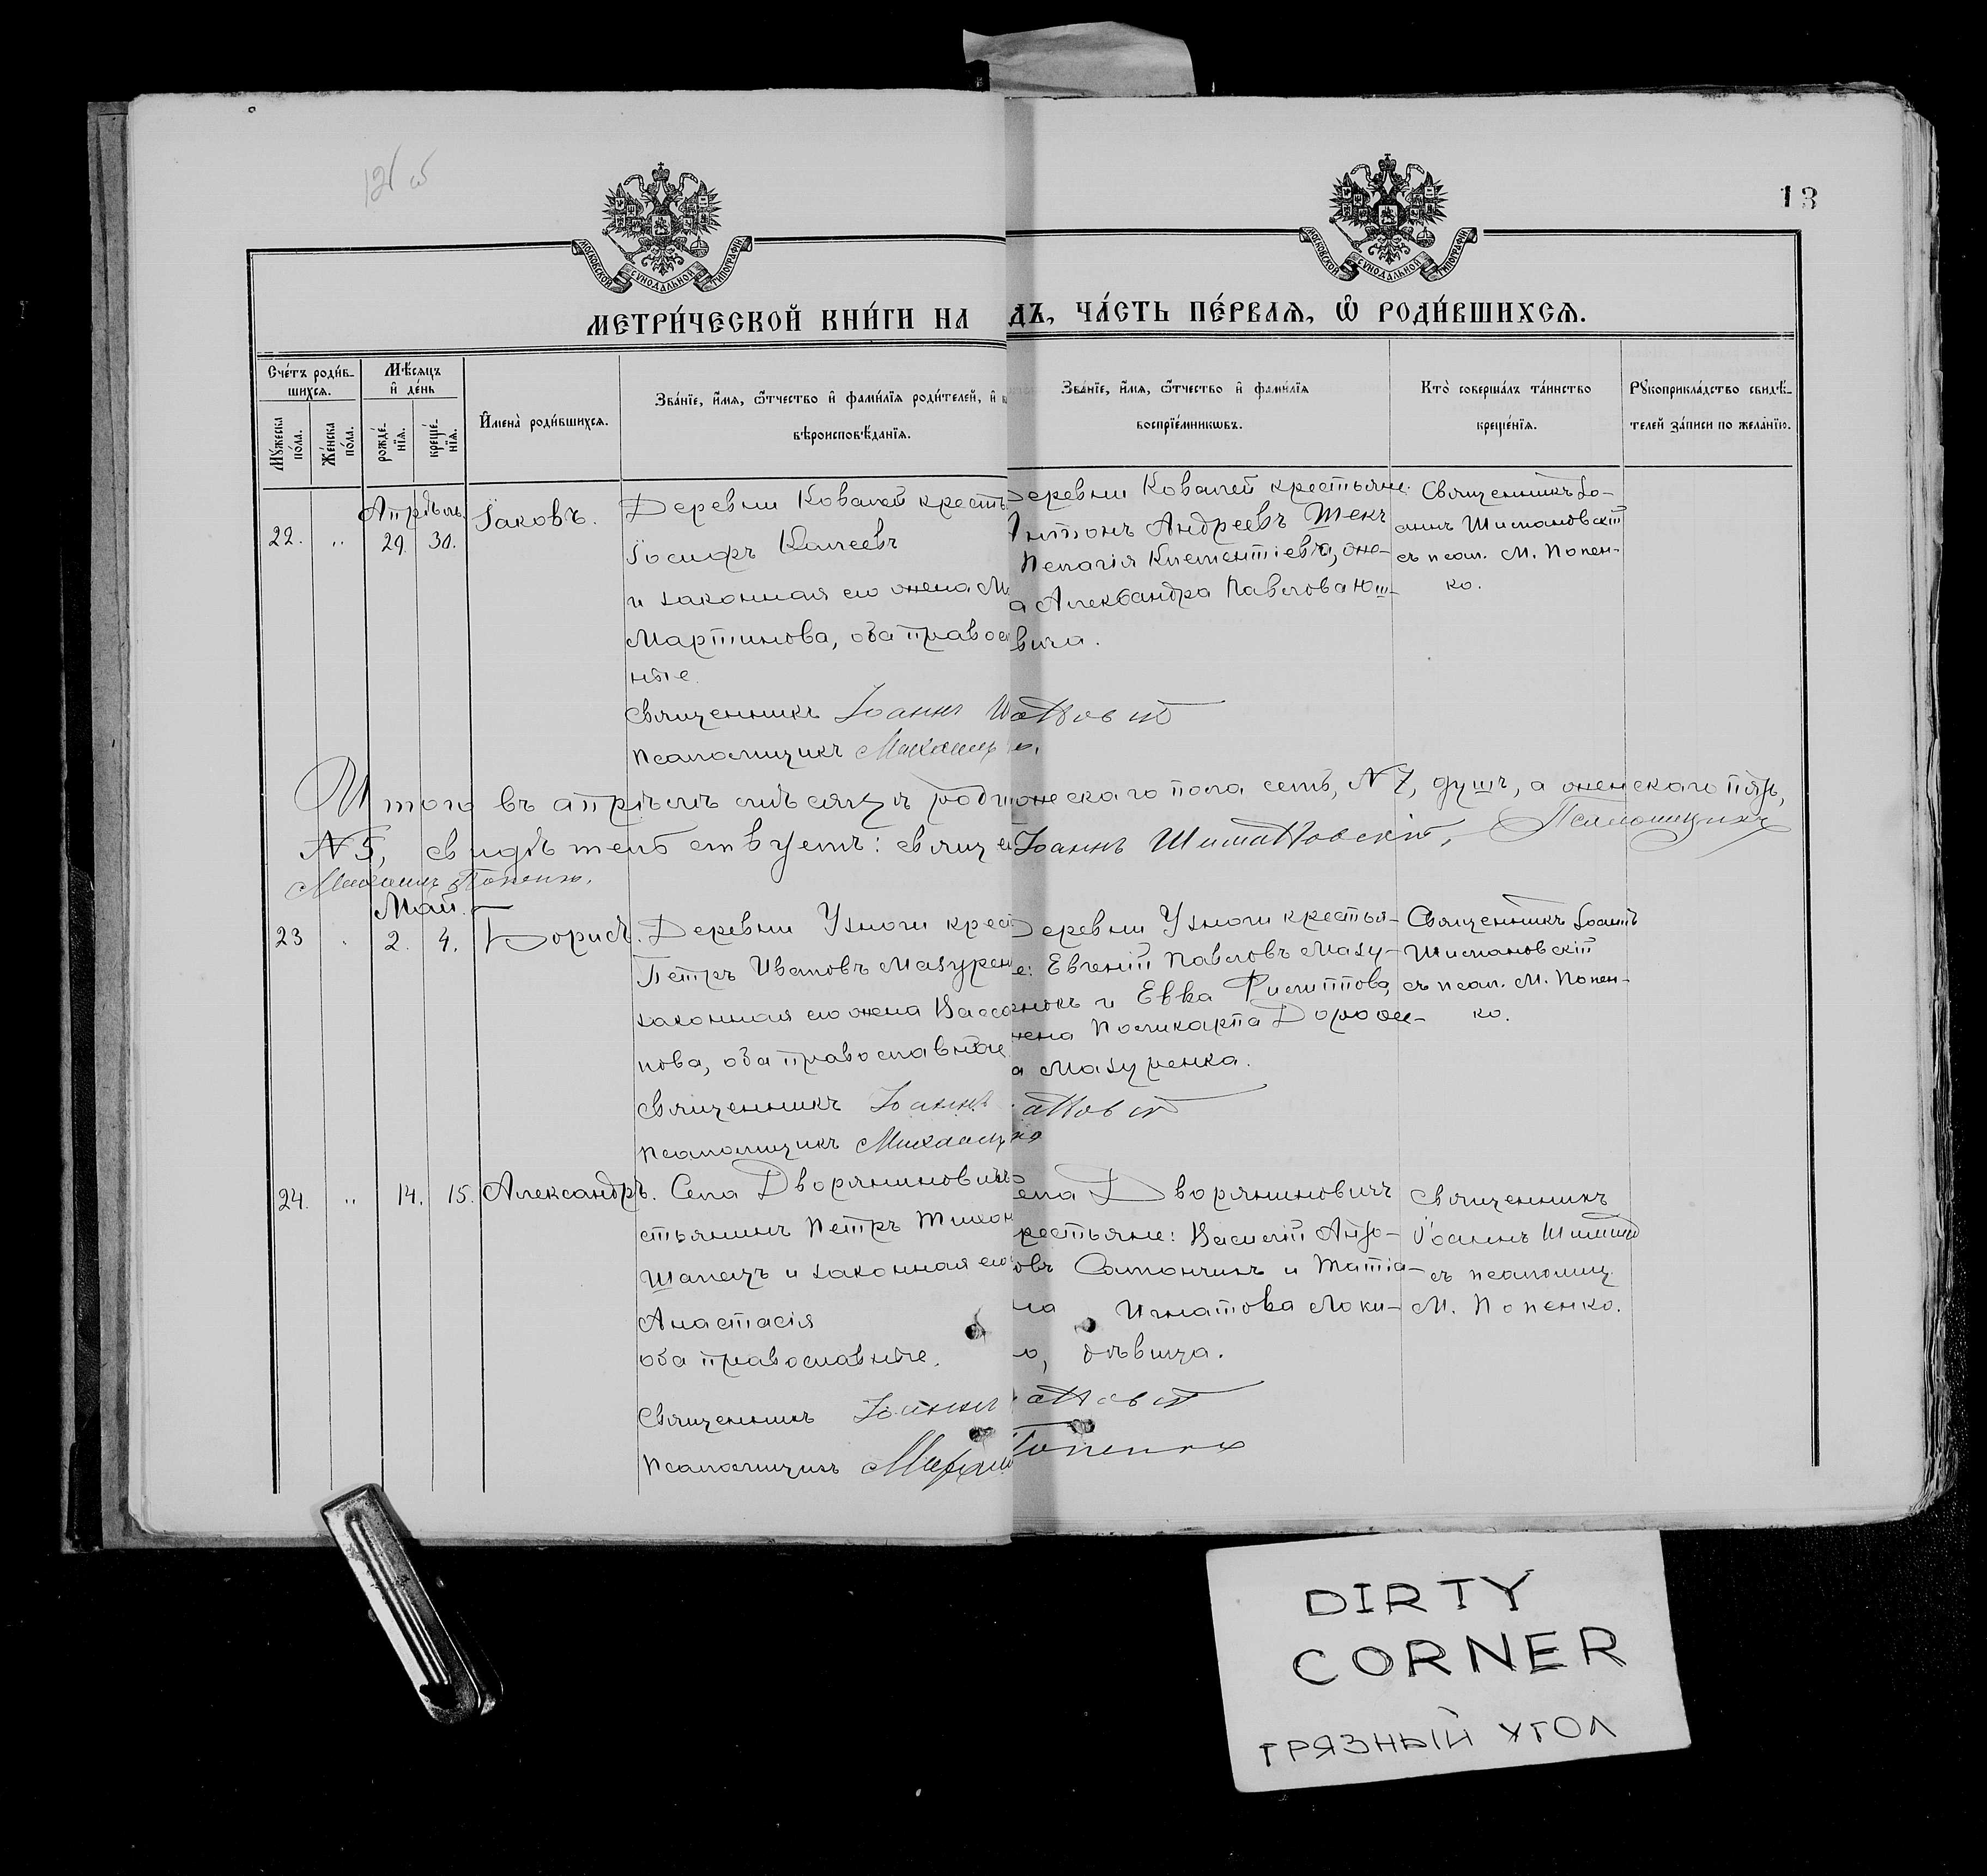 13
МОСКОВСКОЙ СѴНОДАЛЬНОЙ ТИПОГРАФІИ
МОСКОВСКОЙ СѴНОДАЛЬНОЙ ТИПОГРАФІИ
МЕТРИ́ЧЕСКОЙ КНИ́ГИ НА
ДЪ, ЧА́СТЬ ПЕ́РВАѦ, Ѡ҆ РОДИ́ВШИХСѦ.
Счéтъ роди́в-
шихся.
Мꙋжеска
по́ла.
Же́нска
по́ла.
Мѣ́сяцъ
и҆ де́нь
рожде́-
нїя.
креще́-
нїя.
И҆мена̀ роди́вшихся.
Зва́нїе, и҆́мя, ѻ҆́тчество и҆ фами́лїя роди́телей, и҆
вѣроисповѣ́данїя.
Зва́нїе, и҆́мя, ѻ҆́тчество и҆ фами́лїя
воспрїе́мникѡвъ.
Кто̀ соверша́лъ та́инство
креще́нїя.
Рꙋкоприкла́дство свидѣ́-
телей за́писи по жела́нїю.
22.
"
Апрѣль.
29.
30.
Іаковъ.
Деревни Ковалей кресть
Іосифъ
и законная его жена М
Мартинова, оба правос
ные.
Священникъ Іоаннъ
Псаломщикъ Михаилъ
еревни Ковалей крестьяне:
Антонъ Андреевъ Шекъ
Пелагія Климентіева, же-
а Александра Павлова Юш-
вича.
Священникъ Іо-
аннъ Шимановскій
съ псал. М. Попен-
ко.
Итого въ апрѣлѣ мѣсяцѣ роди
жескаго пола семь, № 7, душъ, а женскаго пять,
№ 5, свидѣтельствуетъ: свяще
Іоаннъ Шимановскій, Псаломщикъ
Михаилъ Попенко.
Май.
23
2.
4.
Борисъ.
Деревни Узноги крест
Петръ Ивановъ Мазурен
законная его жена Васса
пова, оба православные.
Священникъ Іоаннъ
Псаломщикъ Михаилъ
еревни Узноги крестья-
е: Евгеній Павловъ Мазу-
нокъ и Евва Филиппова,
жена Поликарпа Дорофе-
а Мазуренка.
Священникъ Іоаннъ
Шимановскій
съ псал. М. Попен-
ко.
24.
"
14.
15.
Александръ.
Села Дворяниновичъ
стьянинъ Петръ Тихон
Шапецъ и законная его
Анастасія
оба православные.
Священникъ Іоаннъ
Псаломщикъ
ела Дворяниновичъ
рестьяне: Василій
овъ и Татіа-
на Игнатова Локи-
о, дѣвица.
Попенко
Священникъ
Іоаннъ
съ псаломщ.
М. Попенко.
DIRTY
CORNER
ГРЯЗНЫЙ УГОЛ